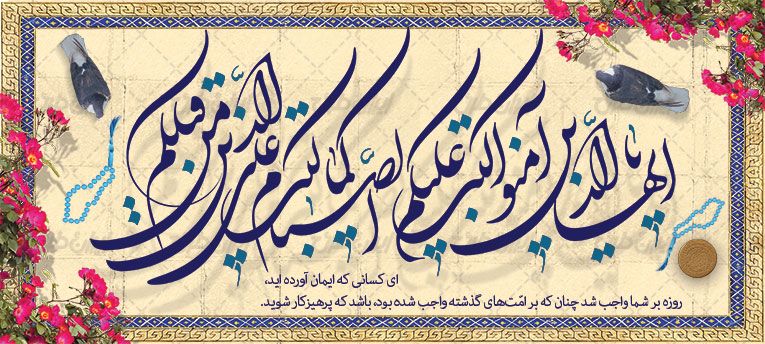 یا ایها الذین آمنوا کتب علیکم الصیام کما کتب علی الذین من قبلکم
ای کسانی که ایمان آورده اید،
روزه بر شما واجب شد چنان که بر امّت‌های گذشته واجب شده بود، باشد که پرهیزکار شوید.